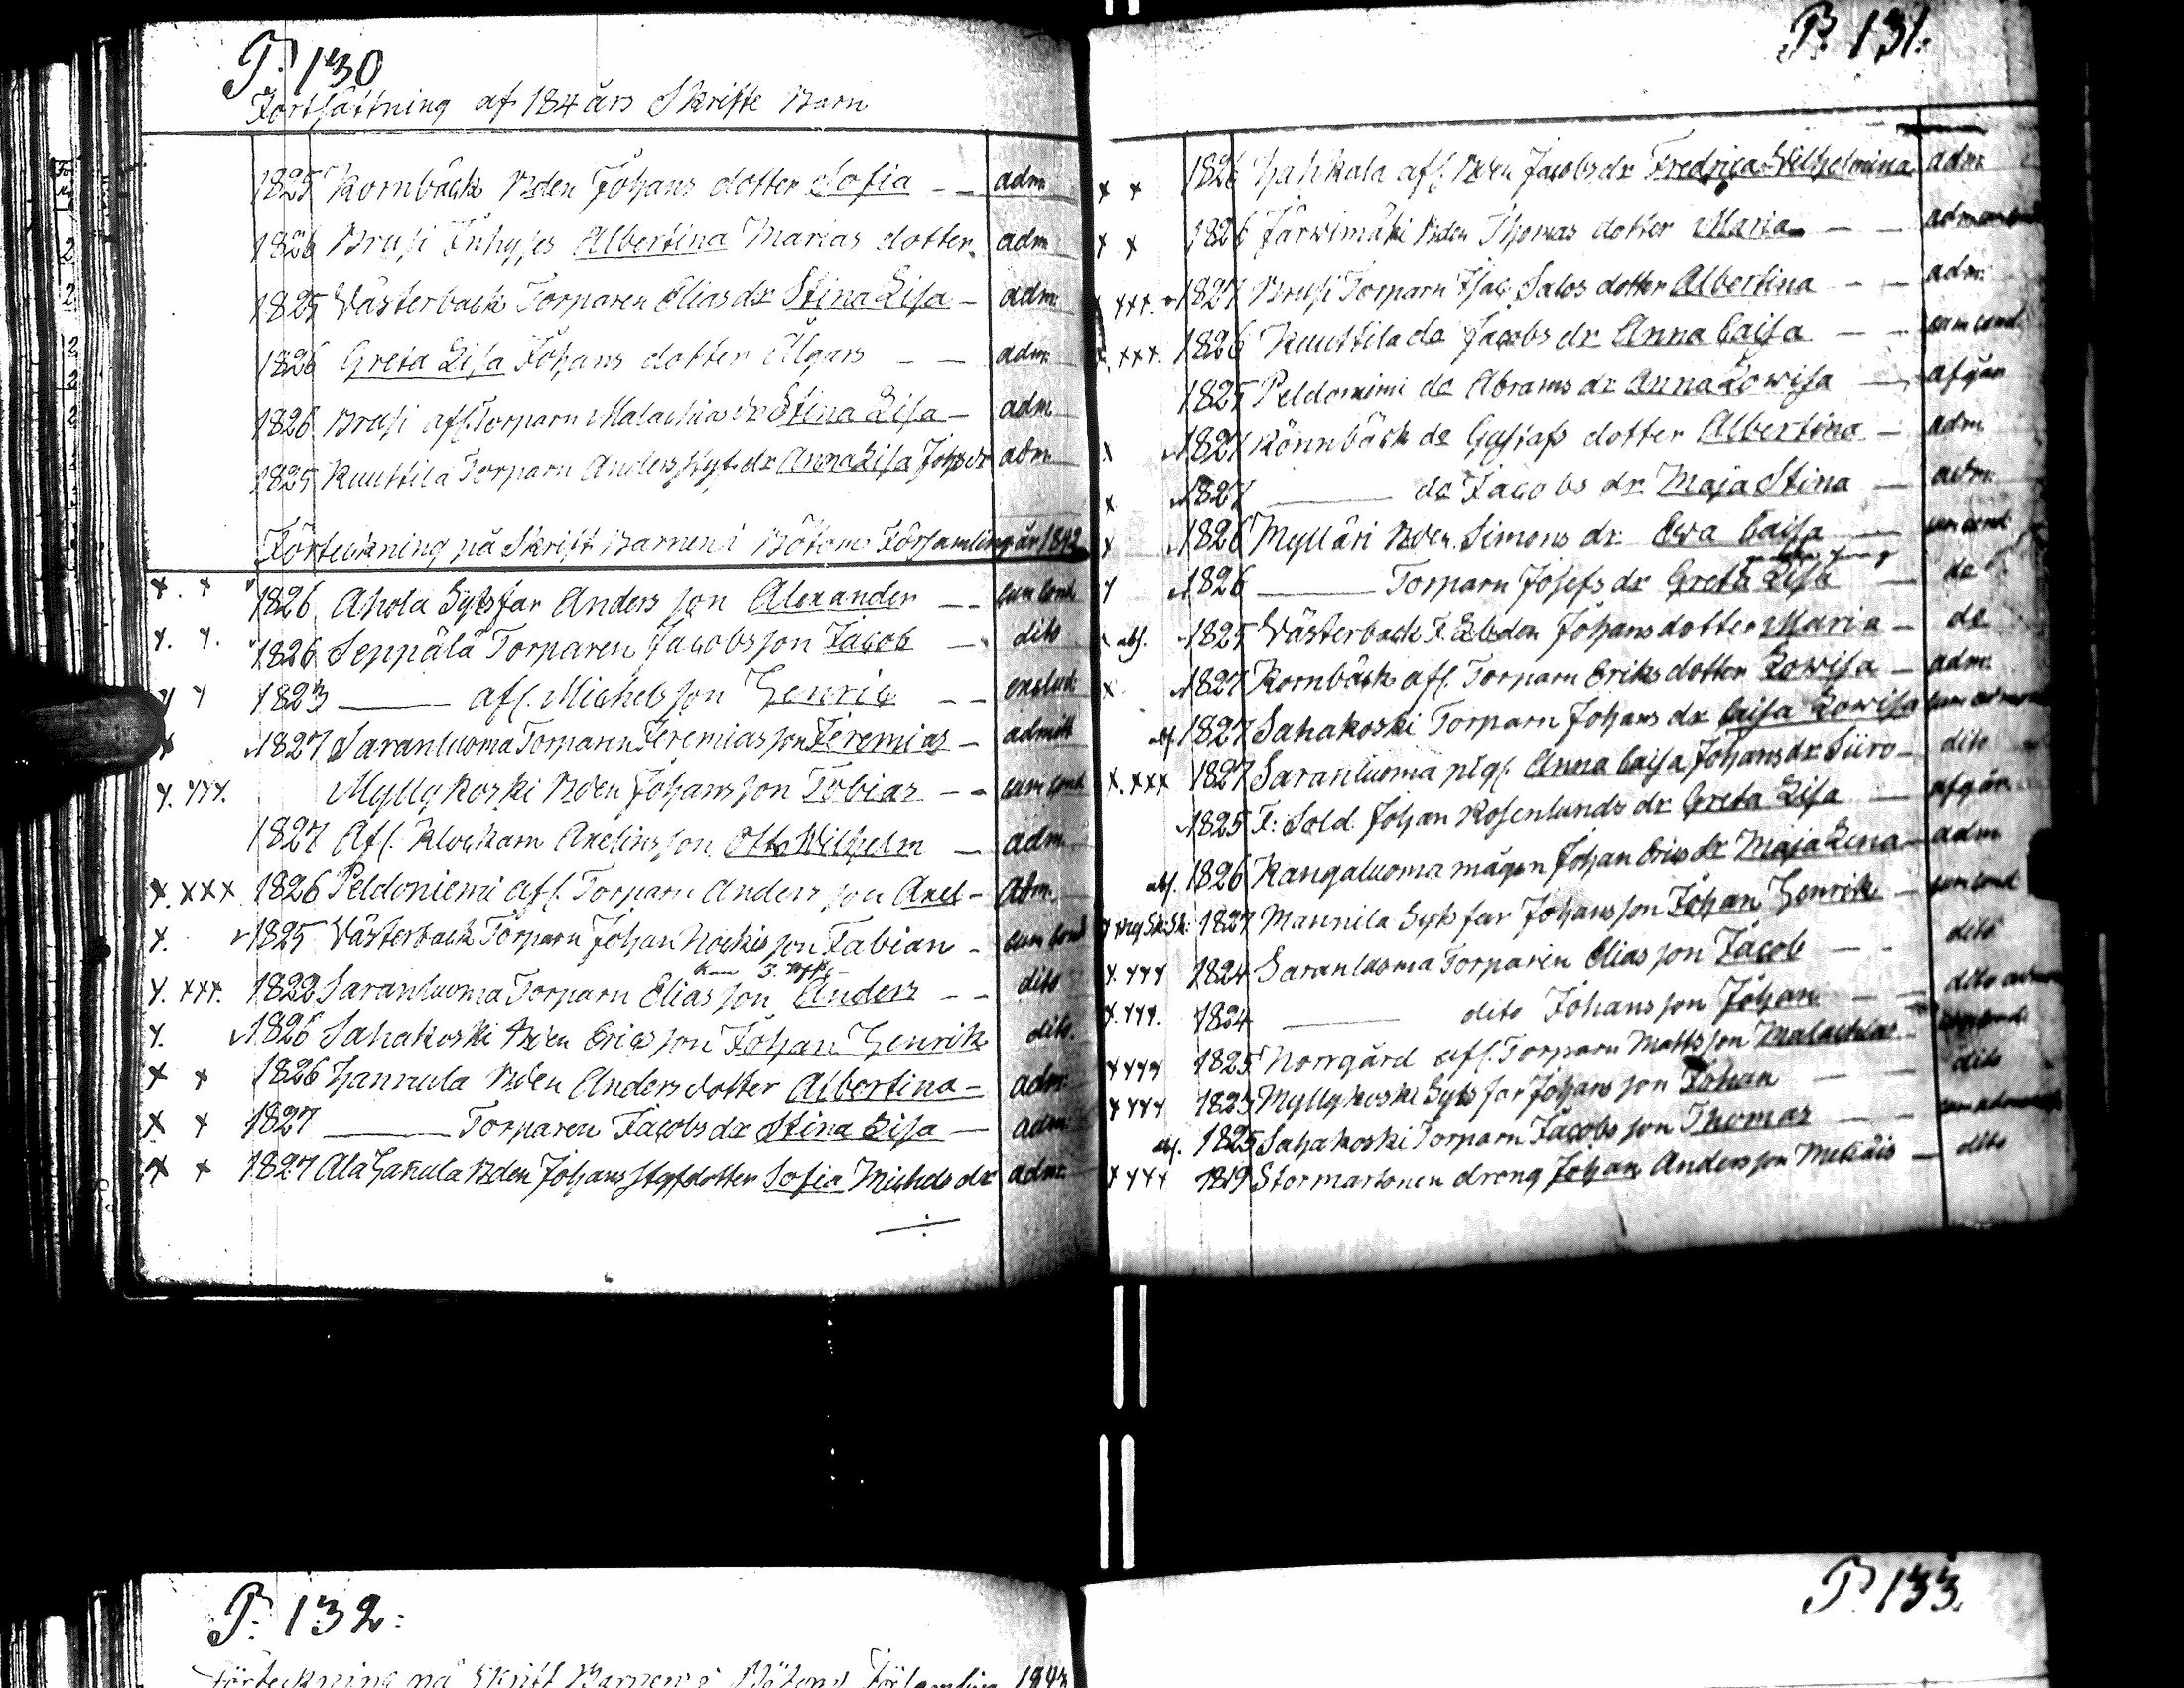 P. 130
Fortsättning af 184 års Skrifte Barn
1825 Kornbäck Bden Johans dotter Sofia — — adm.
1826 Brusi Inhyses Albertina Marias dotter. adm
1825 Västerback Torparen Elias dr Stina Lisa — adm:
1826 Greta Lisa Johans dotter Älgars — — adm:
1826 Brusi afl. Torparn Malachias dr Stina Lisa — adm.
1825 Kuuttila Torparn Anders styf dr Anna Lisa Johs dr adm.
Förteckning på Skrift Barnen i Bötom Församling år 1842
x. x 1826 Ahola Sytsfar Anders son Alexander — — cum cond.
x. x. 1826 Seppälä Torparen Jacobs son Jacob — dito
x x 1823 —— afl. Michels son Henric — — exclud:
x 1827 Saranluoma Torparen Jeremias son Jeremias — admitt
x. xxx. Myllykoski Bden Johans son Tobias — — cum cond
1827 Afl. Klockarn Axelins son Otto Wilhelm — adm.
x. xxx 1826 Peldoniemi afl. Torparn Anders son Axel — Adm.
x. 1825 Västerback Torparn Johan Nockis son Fabian — cum cond
x. xxx. 1822 Saranluoma Torparn Elias son Anders — — dito
x. 1826 Sahakoski Bden Erics son Johan Henrik dito.
x x 1826 Hannula Bden Anders dotter Albertina — adm:
x x 1827 —— Torparen Jacobs dr Stina Lisa — adm:
x x 1827 Ala Hakula Bden Johans styfdotter Sofia Michels dr adm:
P. 131.
x x 1826 Hahkala afl. Bden Jacobs dr Fredrica Wilhelmina adm.
x x 1826 Järwimäki Bden Thomas dotter Maria — —
xxx. 1827 Brusi Torparn Isac Salos dotter Albertina — — adm:
xxx. 1826 Kuuttila do Jacobs dr Anna Caisa — — cum cond.
1825 Peldoniemi do Abrams dr Anna Lowisa — afgån
x 1827 Rönnbäck do Gustafs dotter Albertina — adm
x 1827 —— do Jacobs dr Maja Stina — adm:
x 1826 Mylläri Bden Simons dr Ewa Caisa — cum cond
x 1826 —— Torparn Josefs dr Greta Lisa — do
abs. 1825 Västerback Bden Johans dotter Maria — do
x 1827 Kornbäck afl. Torparn Eriks dotter Lowisa — adm:
abs. 1827 Sahakoski Torparn Johans dr Caisa Lowisa
x. xxx 1827 Saranluoma pig. Anna Caisa Johans dr Siiro — dito
1825 F: Sold. Johan Rosenlunds dr Greta Lisa — afgån
abs. 1826 Kangaluoma mågen Johan Erics dr Maja Lena — adm
1827 Mannila Sytsfar Johans son Johan Henrik — cum cond
x. xxx 1824 Saranluoma Torparen Elias son Jacob — — dito
x. xxx. 1824 —— dito Johans son Johan — — dito
xxxx 1825 Norrgård afl. Torparn Matts son Malachias —
xxxx 1823 Myllykoski Sytsfar Johans son Johan — — dito
abs. 1825 Sahakoski Torparn Jacobs son Thomas — —
x xxx 1819 Stormartonen dreng Johan Anders son Mekäis — dito
P. 132:
Förteckning på Skrift Barnen i Bötom Församling 1843
P. 133.